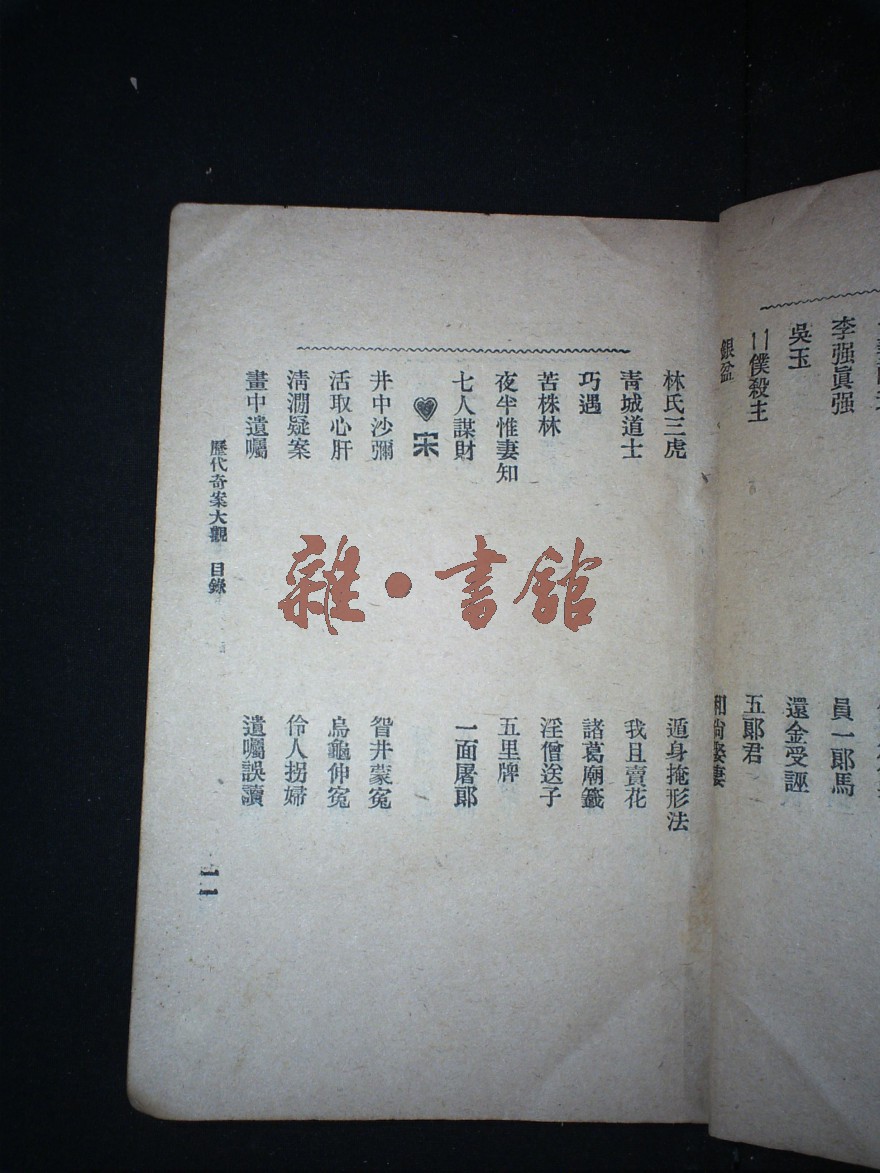 李强眞强
員一郎馬
吳玉
還金受誣
僕殺主
五郎君
銀盆
和尚娶妻
林氏三虎
遁身掩形法
靑城道士
我且賣花
巧遇
諸葛廟籤
苦株林
淫僧送子
夜半惟妻知
五里牌
七人謀財
一面屠郎
宋
井中沙彌
眢井蒙寃
活取心肝
烏龜伸寃
淸澗疑案
伶人拐婦
畫中遺囑
遺囑誤讀
歷代奇案大觀 目錄
二
雜·書館